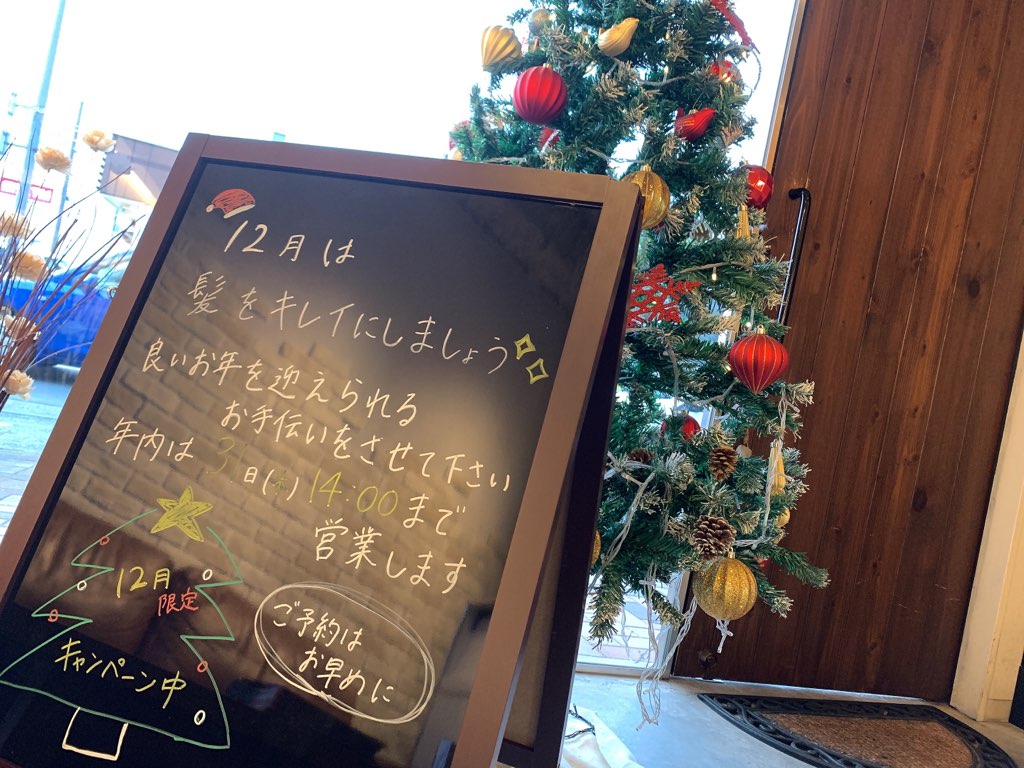 12月は
髪をキレイにしましょう
良いお年を迎えられる
お手伝いをさせて下さい
年内は31日(木)14:00まで
営業します
12月
限定
キャンペーン中
ご予約は
お早めに